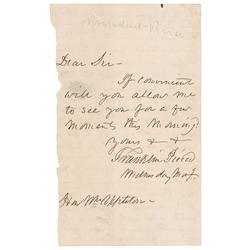 Dear Sir -
If convenient
will you allow me
to see you for a few
moments this morning.
Yours &c &c
Franklin Pierce
Wednesday Mor.
Hon Mr Appleton -